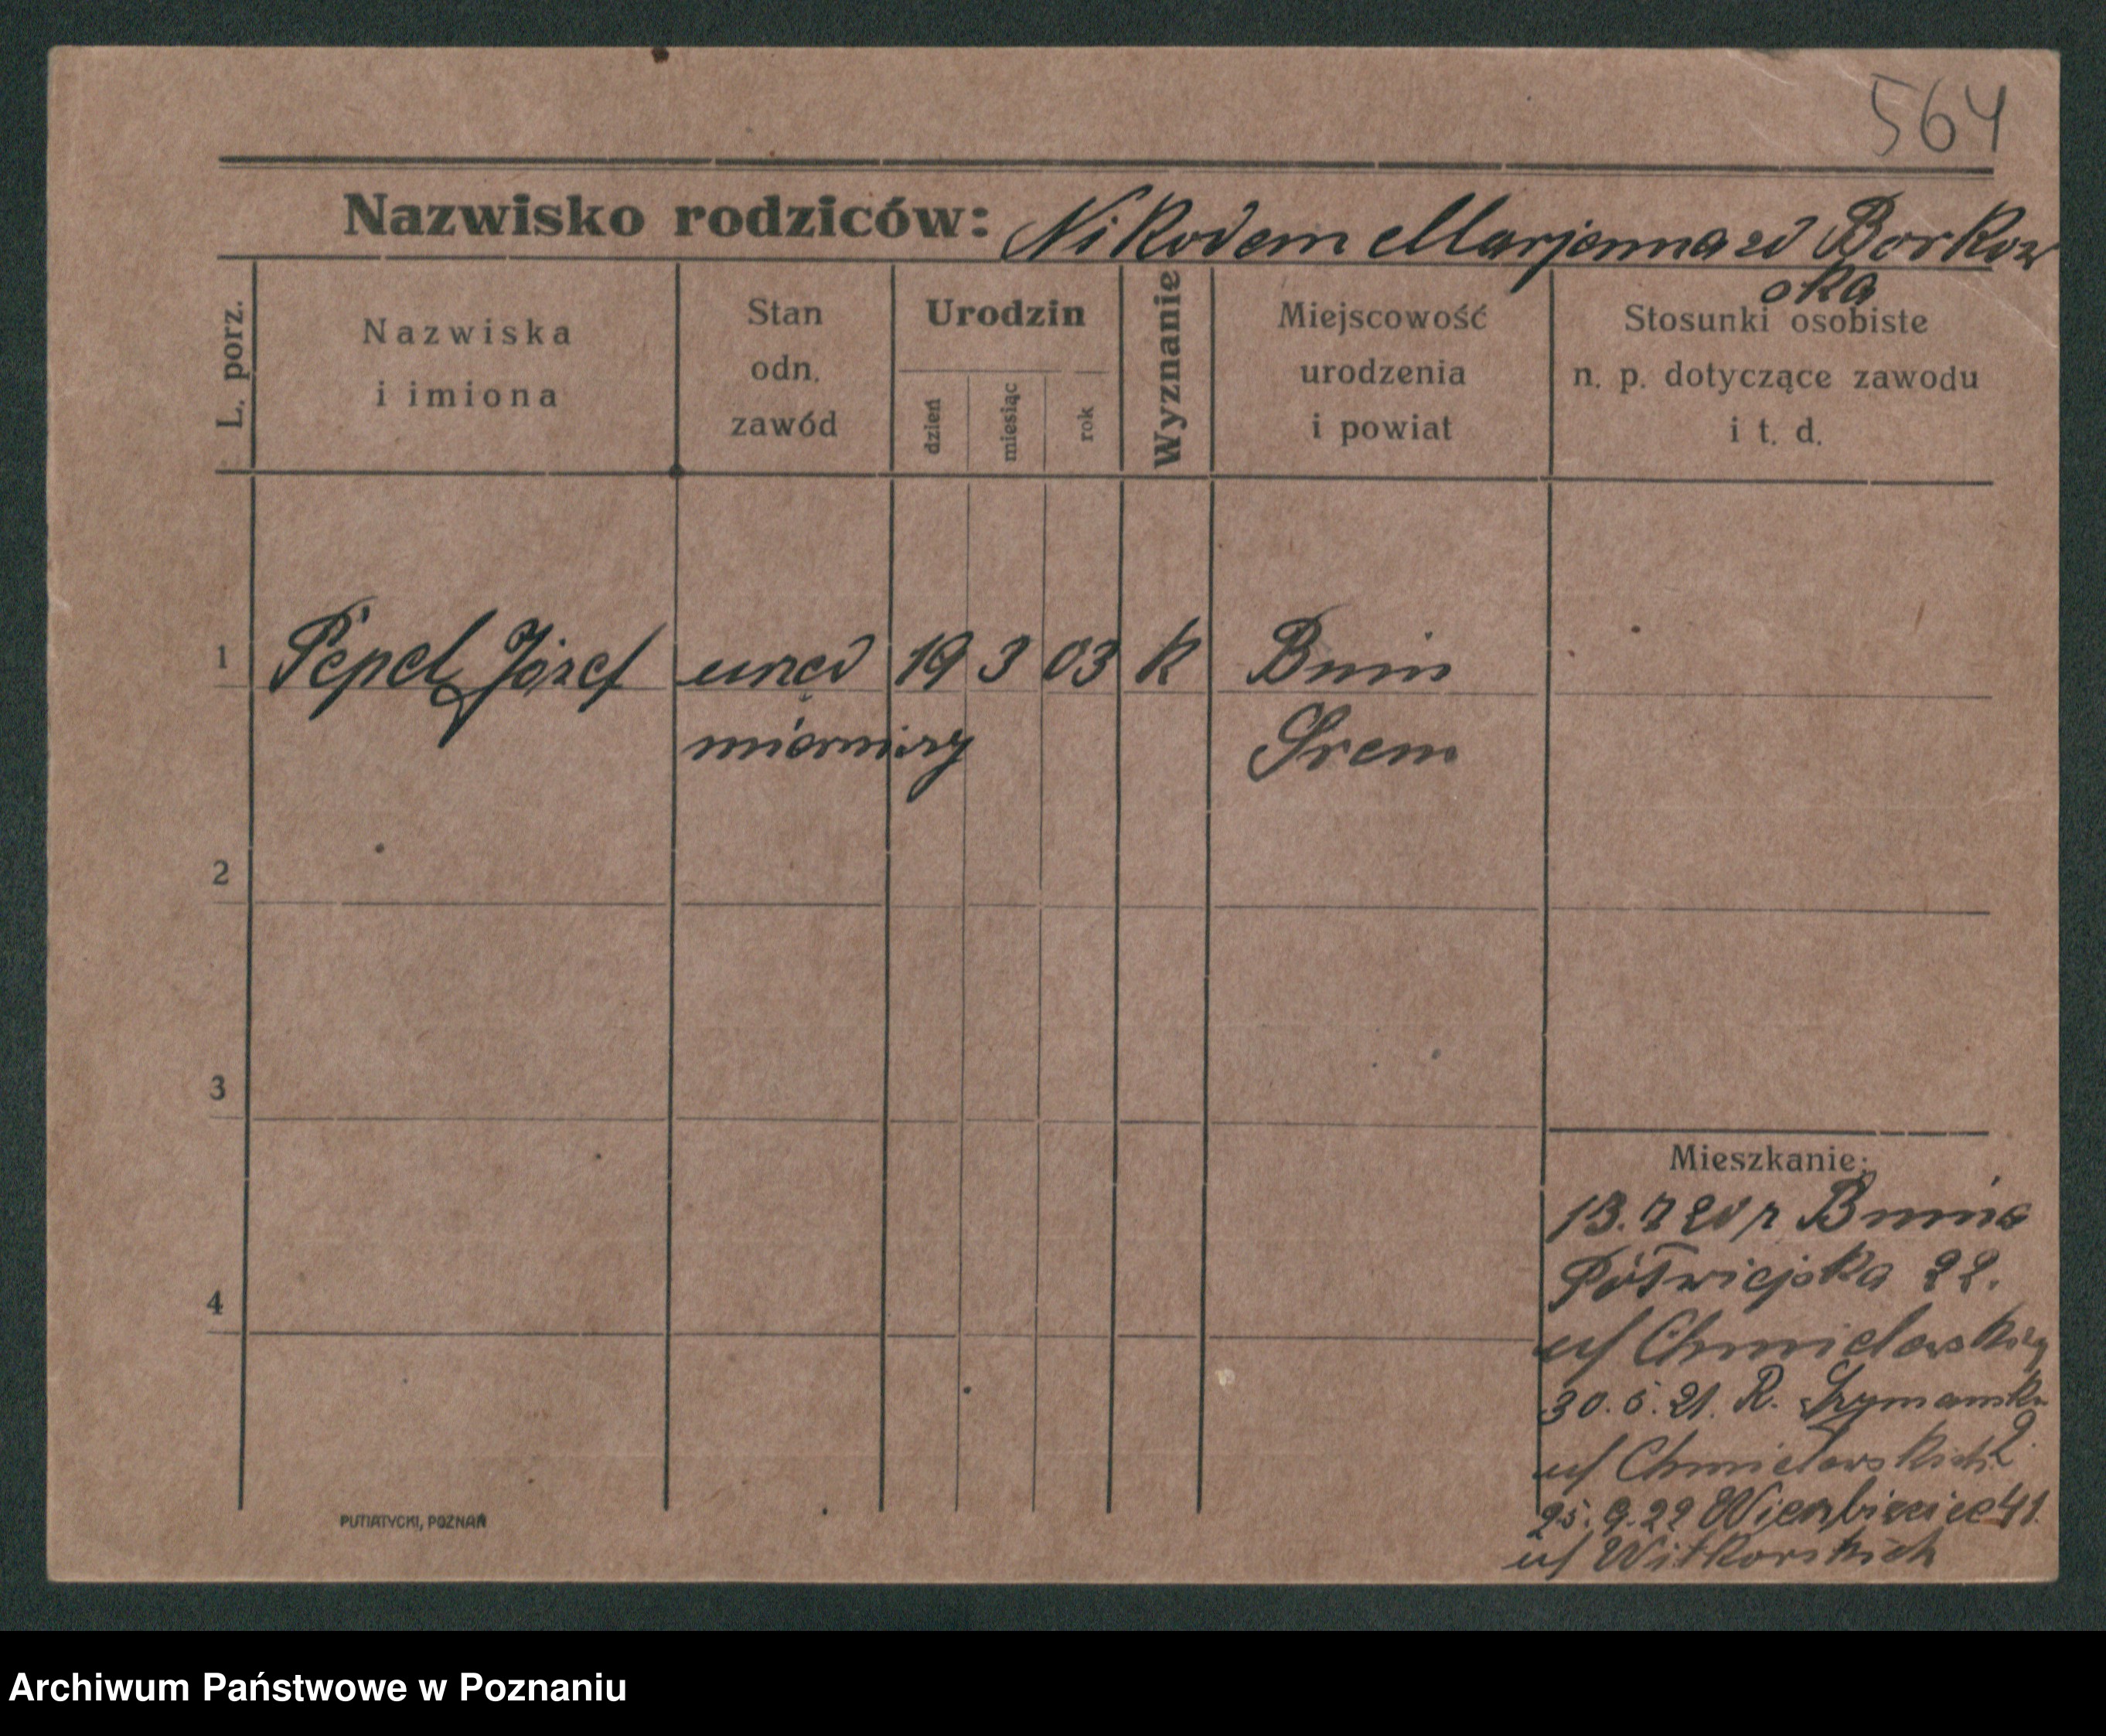 564
Nazwisko rodziców: Nikodem Marjanna zd Borkow
ska
L. porz.
Nazwiska
i imiona
Stan
odn.
zawód
Urodzin
dzień
miesiąc
rok
Wyznanie
Miejscowość
urodzenia
i powiat
Stosunki osobiste
n. p. dotyczące zawodu
i t. d.
1 Pepel Józef urzęd 19 3 03 k Bnin
mierniczy Śrem
2
3
4
Mieszkanie:
13.7 20 r Bnina
Półwiejska 22.
u/ Chmielewskiej
30.5.21. R. Szymański
2.
u/ Chmielewskich
25.9.22 Wierzbięcice 41.
u/ Witkowskich
PUTIATYCKI, POZNAŃ
Archiwum Państwowe w Poznaniu